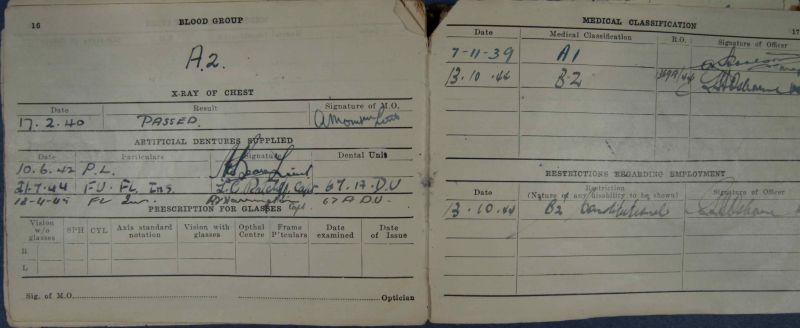 16
BLOOD GROUP
A.2.
X-RAY OF CHEST
Date Result Signature of M.O.
17.2.40 PASSED.
ARTIFICIAL DENTURES SUPPLIED
Date Particulars Signature Dental Unit
10.6.42 P.L.
21.7.44 FU. FL. Ins. Capt 67.17.D.U
FL 67 A D.U.
PRESCRIPTION FOR GLASSES
Vision w/o glasses SPH CYL Axis standard notation Vision with glasses Opthal Centre Frame P'tculars Date examined Date of Issue
R
L
Sig. of M.O. Optician
MEDICAL CLASSIFICATION
17
Date Medical Classification R.O. Signature of Officer
7-11-39 A1
13.10.44 B2
RESTRICTIONS REGARDING EMPLOYMENT
Date Restriction (Nature of any disability to be shown) Signature of Officer
13.10.44 B2 Constitutional